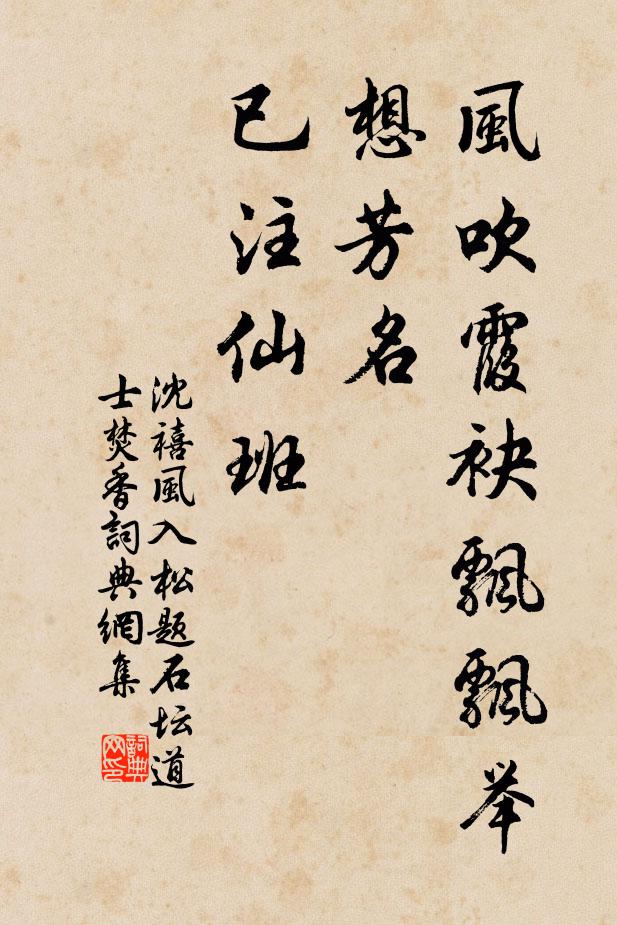 風吹霞袂飄飄举
想芳名
已注仙班
沈禧風入松题石坛道
士焚香詞典網集
詞典网印